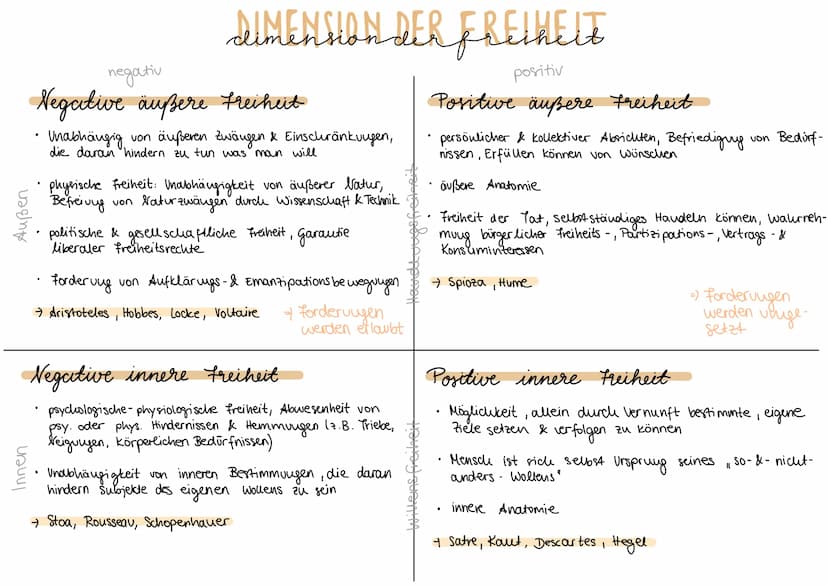 DIMENSION DER FREIHEIT
dimension der freiheit
negativ
positiv
Außen
Negative äußere Freiheit
· Unabhängig von äußeren Zwängen & Einschränkungen,
die daran hindern zu tun was man will
· physische Freiheit: Unabhängigkeit von äußerer Natur,
Befreiung von Naturzwängen durch Wissenschaft & Technik
· politische & gesellschaftliche Freiheit, Garantie
liberaler Freiheitsrechte
· Forderung von Aufklärungs- & Emanzipationsbewegungen
→ Aristoteles, Hobbes, Locke, Voltaire
→ Forderungen
werden erlaubt
Handlungsfreiheit
Positive äußere Freiheit
· persönlicher & kollektiver Absichten, Befriedigung von Bedürf-
nissen, Erfüllen können von Wünschen
· äußere Anatomie
· Freiheit der Tat, selbstständiges Handeln können, Wahrneh-
mung bürgerlicher Freiheits-, Partizipations-, Vertrags- &
Konsuminteressen
→ Spioza, Hume
→ Forderungen
werden umge-
setzt
Innen
Negative innere Freiheit
· psychologische-physiologische Freiheit, Abwesenheit von
psy. oder phys. Hindernissen & Hemmungen (z.B. Triebe,
Neigungen, körperlichen Bedürfnissen)
· Unabhängigkeit von inneren Bestimmungen, die daran
hindern Subjekte des eigenen Wollens zu sein
→ Stoa, Rousseau, Schopenhauer
Willensfreiheit
Positive innere Freiheit
· Möglichkeit, allein durch Vernunft bestimmte, eigene
Ziele setzen & verfolgen zu können
· Mensch ist sich selbst Ursprung seines "so-&-nicht-
anders-Wollens"
· innere Anatomie
→ Satre, Kant, Descartes, Hegel